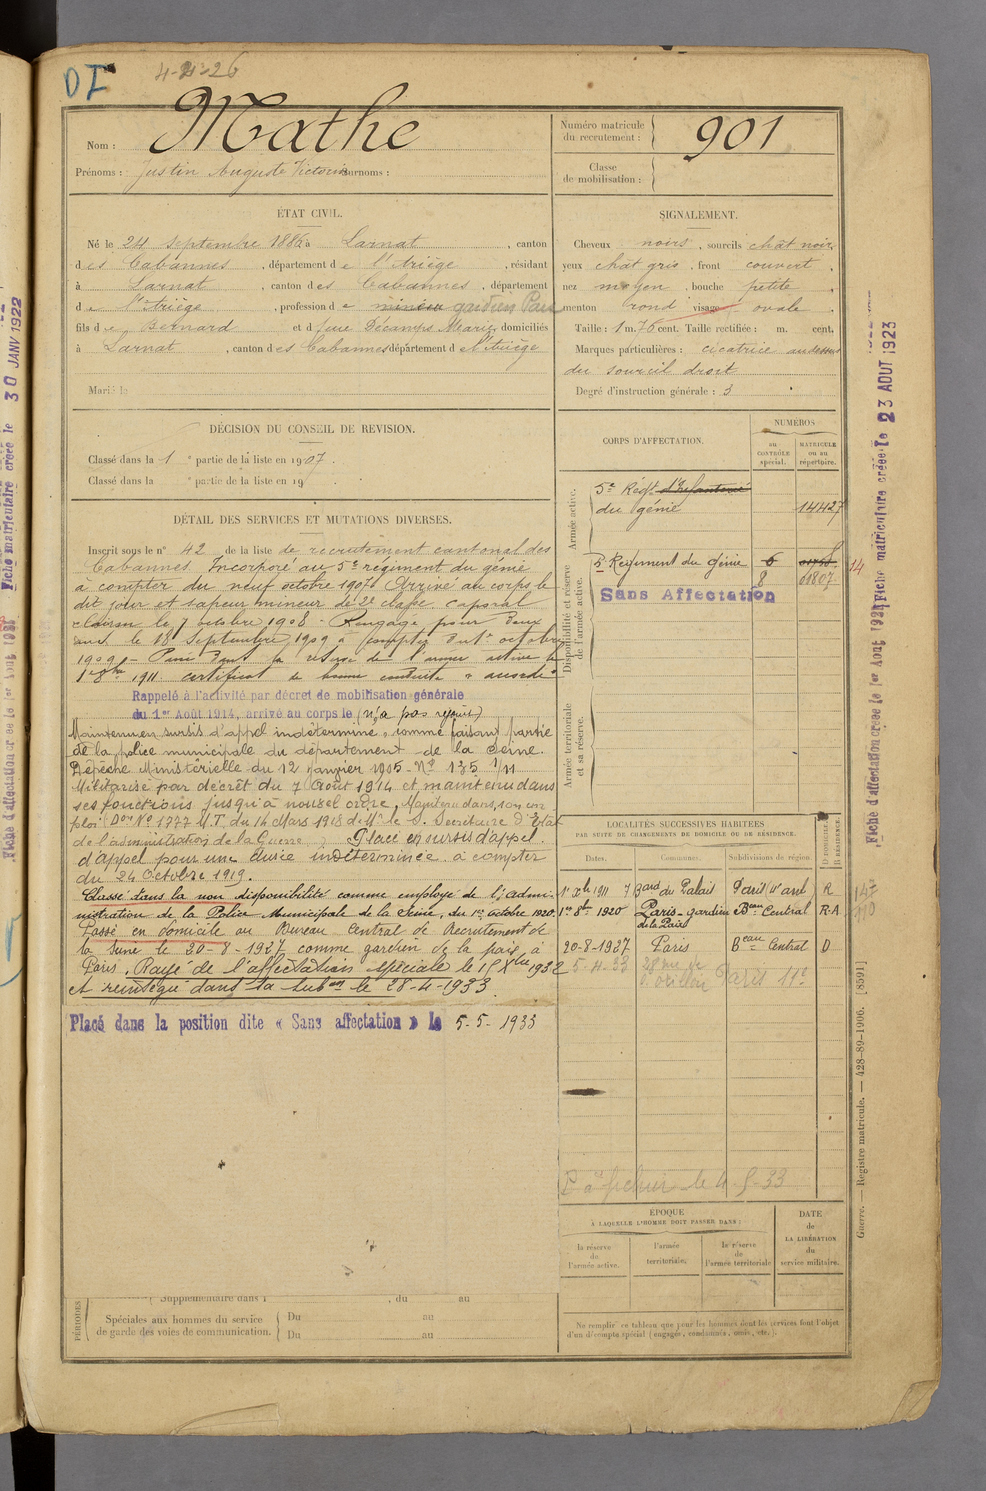 DI
4-2-26
Nom : Mathe
Prénoms : Justin Auguste Victorin Surnoms :
Numéro matricule du recrutement : 901
Classe de mobilisation :
ÉTAT CIVIL.
Né le 24 septembre 1886 à Larnat , canton
des Cabannes , département de l'Ariège , résidant
à Larnat , canton des Cabannes , département
de l'Ariège , profession de mineur gardien Paix
fils de Bernard et de feue Décamps Marie, domiciliés
à Larnat , canton des Cabannes département de l'Ariège
Marié le
SIGNALEMENT.
Cheveux noirs , sourcils chât noir,
yeux chât gris , front couvert ,
nez moyen , bouche petite ,
menton rond visage ovale .
Taille : 1 m. 76 cent. Taille rectifiée : m. cent.
Marques particulières : cicatrice au dessus
du sourcil droit
Degré d'instruction générale : 3
DÉCISION DU CONSEIL DE REVISION.
Classé dans la 1 e partie de la liste en 1907 .
Classé dans la e partie de la liste en 19
DÉTAIL DES SERVICES ET MUTATIONS DIVERSES.
Inscrit sous le n° 42 de la liste de recrutement cantonal des
Cabannes. Incorporé au 5e régiment du génie
à compter du neuf octobre 1907. Arrivé au corps le
dit jour et sapeur mineur de 2e classe Caporal
clairon le 7 octobre 1908. Rengagé pour deux
ans le 18 Septembre 1909 à compter du 1er octobre
1909 - Passé dans la réserve de l'armée active le
1er 8bre 1911. certificat de bonne conduite "accordé"
Rappelé à l'activité par décret de mobilisation générale
du 1er Août 1914, arrivé au corps le (n'a pas rejoint)
Maintenu en sursis d'appel indéterminé, comme faisant partie
de la police municipale du département de la Seine.
Dépêche Ministérielle du 12 janvier 1905 - No 135 1/11
Militarisé par décrêt du 7 Août 1914 et maintenu dans
ses fonctions jusqu'à nouvel ordre, Maintenu dans son em
ploi (Don No 1777 M.T. du 14 Mars 1918 de Mr le S. Secrétaire d'Etat
de l'administration de la Guerre Placé en sursis d'appel
d'appel pour une durée indéterminée à compter
du 24 Octobre 1919.
Classé dans la non disponibilité comme employé de l'Admi-
nistration de la Police Municipale de la Seine, du 1er octobre 1920.
Passé en domicile au Bureau Central de Recrutement de
la Seine le 20-8-1927 comme gardien de la paix à
Paris. Rayé de l'affectation spéciale le 15 Xbre 1932
et réintégré dans la subon le 28-4-1933
Placé dans la position dite « Sans affectation » le 5-5-1933
CORPS D'AFFECTATION.
NUMÉROS
au CONTRÔLE spécial.
MATRICULE ou au répertoire.
Armée active.
5e Régt d'Infanterie
du génie 14427
Disponibilité et réserve de l'armée active.
5e Régiment du Génie 6
8 01807 14
Sans Affectation
Armée territoriale et sa réserve.
LOCALITÉS SUCCESSIVES HABITÉES
PAR SUITE DE CHANGEMENTS DE DOMICILE OU DE RÉSIDENCE.
Dates. Communes. Subdivisions de région. D DOMICILE. R RÉSIDENCE.
1er Xbre 1911 7 Bard du Palais Paris IVe arrt R
1er 8bre 1920 Paris - gardien de la Paix Beau Central R-A
20-8-1927 Paris Beau Central D
5-4-33 28 rue de l'orillon Paris 11e
147
P à fichier le 4-5-33
ÉPOQUE
À LAQUELLE L'HOMME DOIT PASSER DANS :
la réserve de l'armée active.
l'armée territoriale.
la réserve de l'armée territoriale
DATE de LA LIBÉRATION du service militaire.
PÉRIODES
Supplémentaire dans l , du au
Spéciales aux hommes du service de garde des voies de communication.
Du au
Du au
Ne remplir ce tableau que pour les hommes dont les services font l'objet
d'un décompte spécial (engagés, condamnés, omis, etc.).
Guerre. — Registre matricule. — 428-89-1906. [8591]
Fiche matriculaire créée le 23 AOUT 1923
Fiche d'affectation créée le 1er Août 192
Fiche matriculaire créée le 30 JANV 1922
Fiche d'affectation créée le 1er Août 192